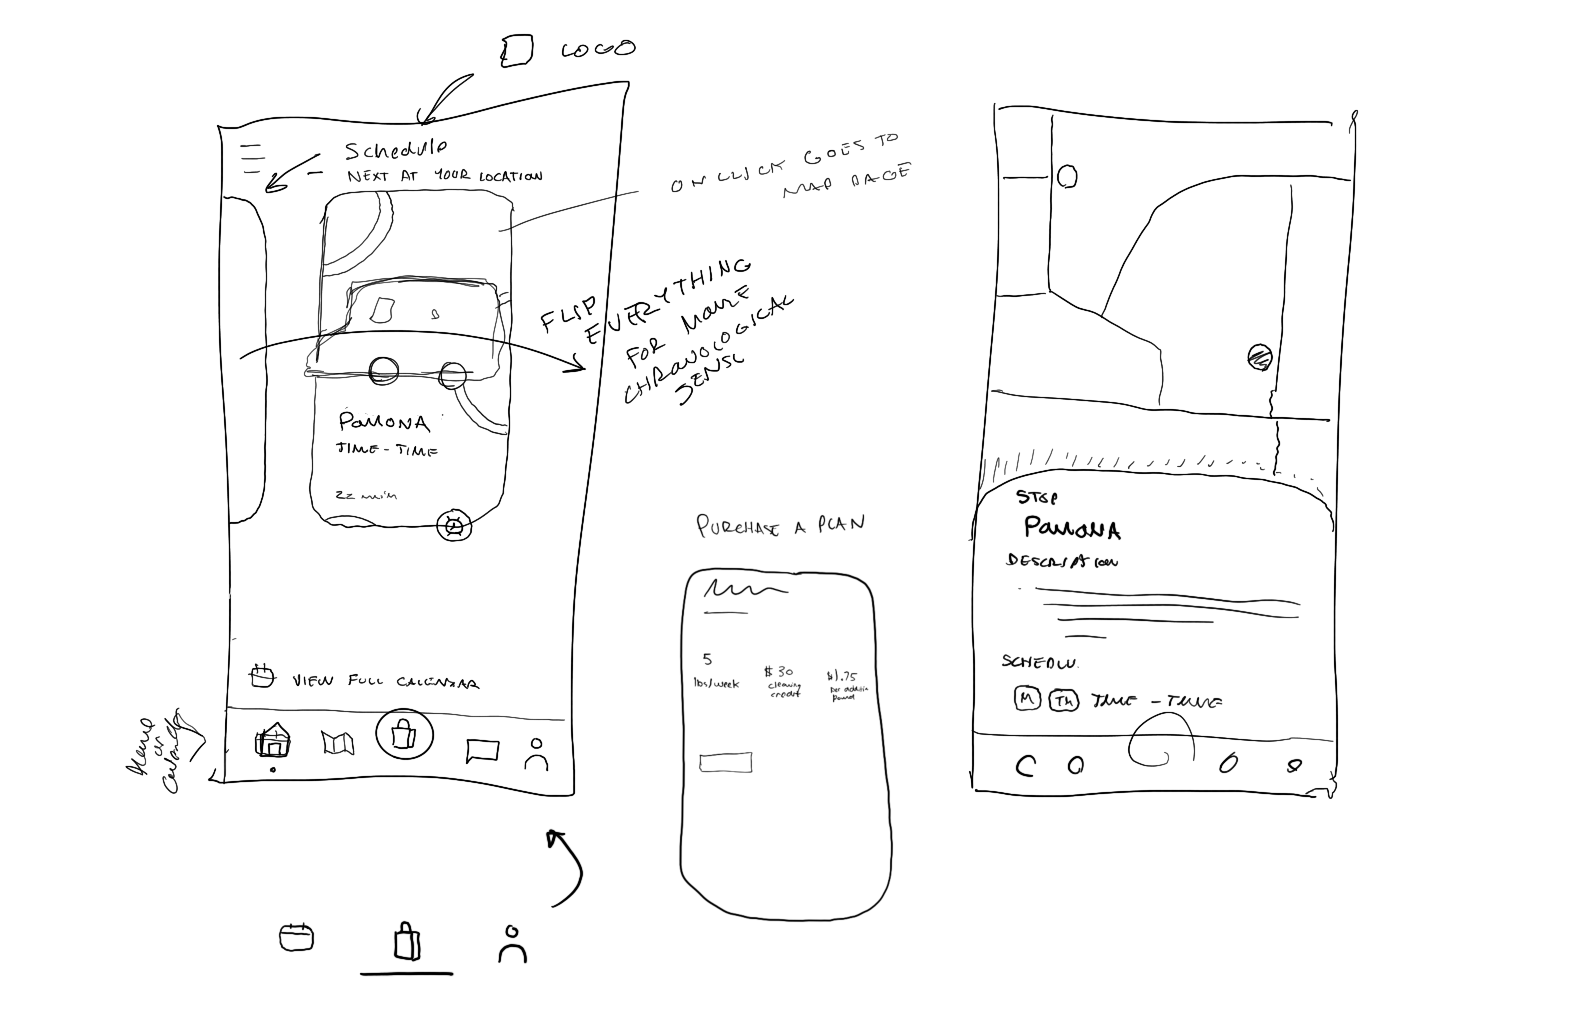 LOGO
Schedule
NEXT AT YOUR LOCATION
ON CLICK GOES TO
MAP PAGE
FLIP
EVERYTHING
FOR MORE
CHRONOLOGICAL
SENSE
PAMONA
TIME - TIME
22 min
VIEW FULL CALENDAR
Home
or
PURCHASE A PLAN
5
lbs/week
$30
cleaning
credit
$1.75
per additin
pound
STOP
PAMONA
DESCRIPTION
SCHEDU.
M TH TIME - TIME